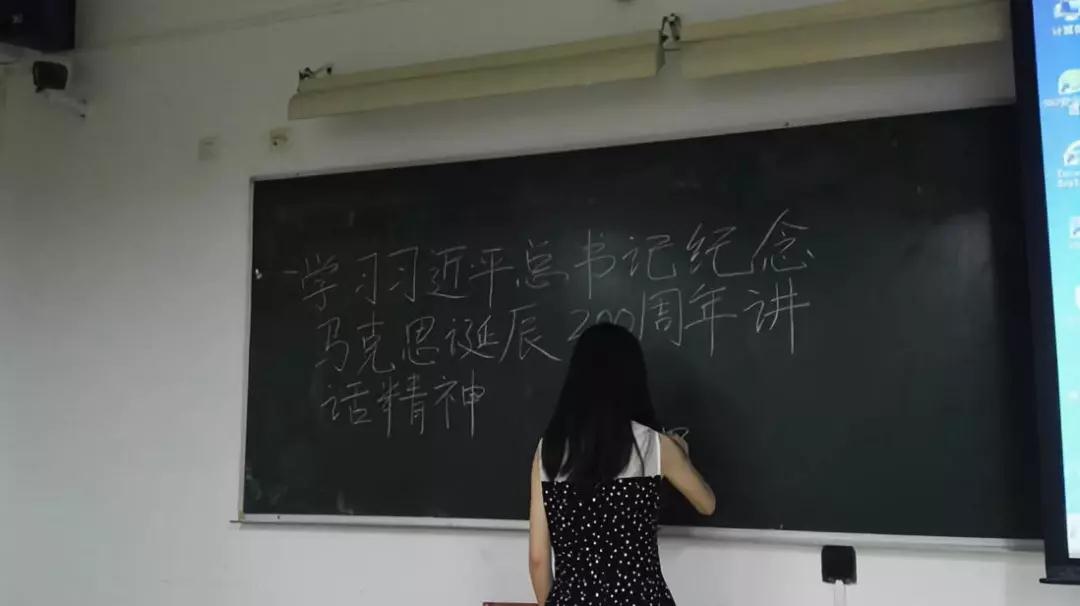 一学习习近平总书记纪念
马克思诞辰200周年讲
话精神